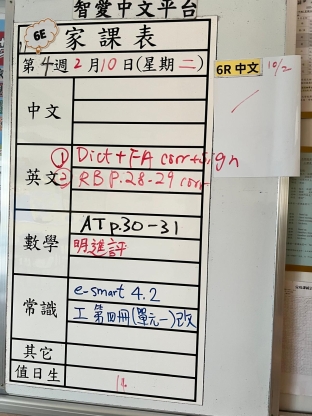 智愛中文平台
6E
家課表
第4週2月10日(星期二)
6R 中文
10/2
中文
英文
① Dict+FA corr+sign
② RB P.28-29 corr
數學
AT p.30-31
明進評
常識
e-smart 4.2
工 第四冊(單元一)改
其它
值日生